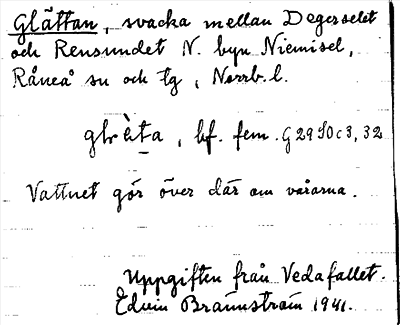 Glättan, svacka mellan Degerselet
och Rensundet N. byn Niemisel,
Råneå sn och tg, Norrb. l.
glèta, bf. fem. G 29 S0c3, 32
Vattnet gör över där om vårarna.
Uppgiften från Vedafallet.
Edvin Brännström 1941.